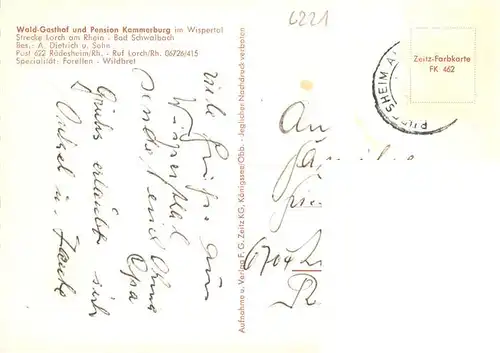 Wald-Gasthof und Pension Kammerburg im Wispertal
Strecke Lorch am Rhein - Bad Schwalbach
Bes.: A. Dietrich u. Sohn
Post 622 Rüdesheim/Rh. - Ruf Lorch/Rh. 06726/415
Spezialität: Forellen - Wildbret
6221
Zeitz-Farbkarte
FK 462
RÜDESHEIM A
viele Grüße aus
Wispertal
sendet Opa
Grüße erlaubt sich
Onkel u. Tante
Aufnahme u. Verlag F. G. Zeitz KG, Königssee/Obb. - Jeglicher Nachdruck verboten
An
Familie